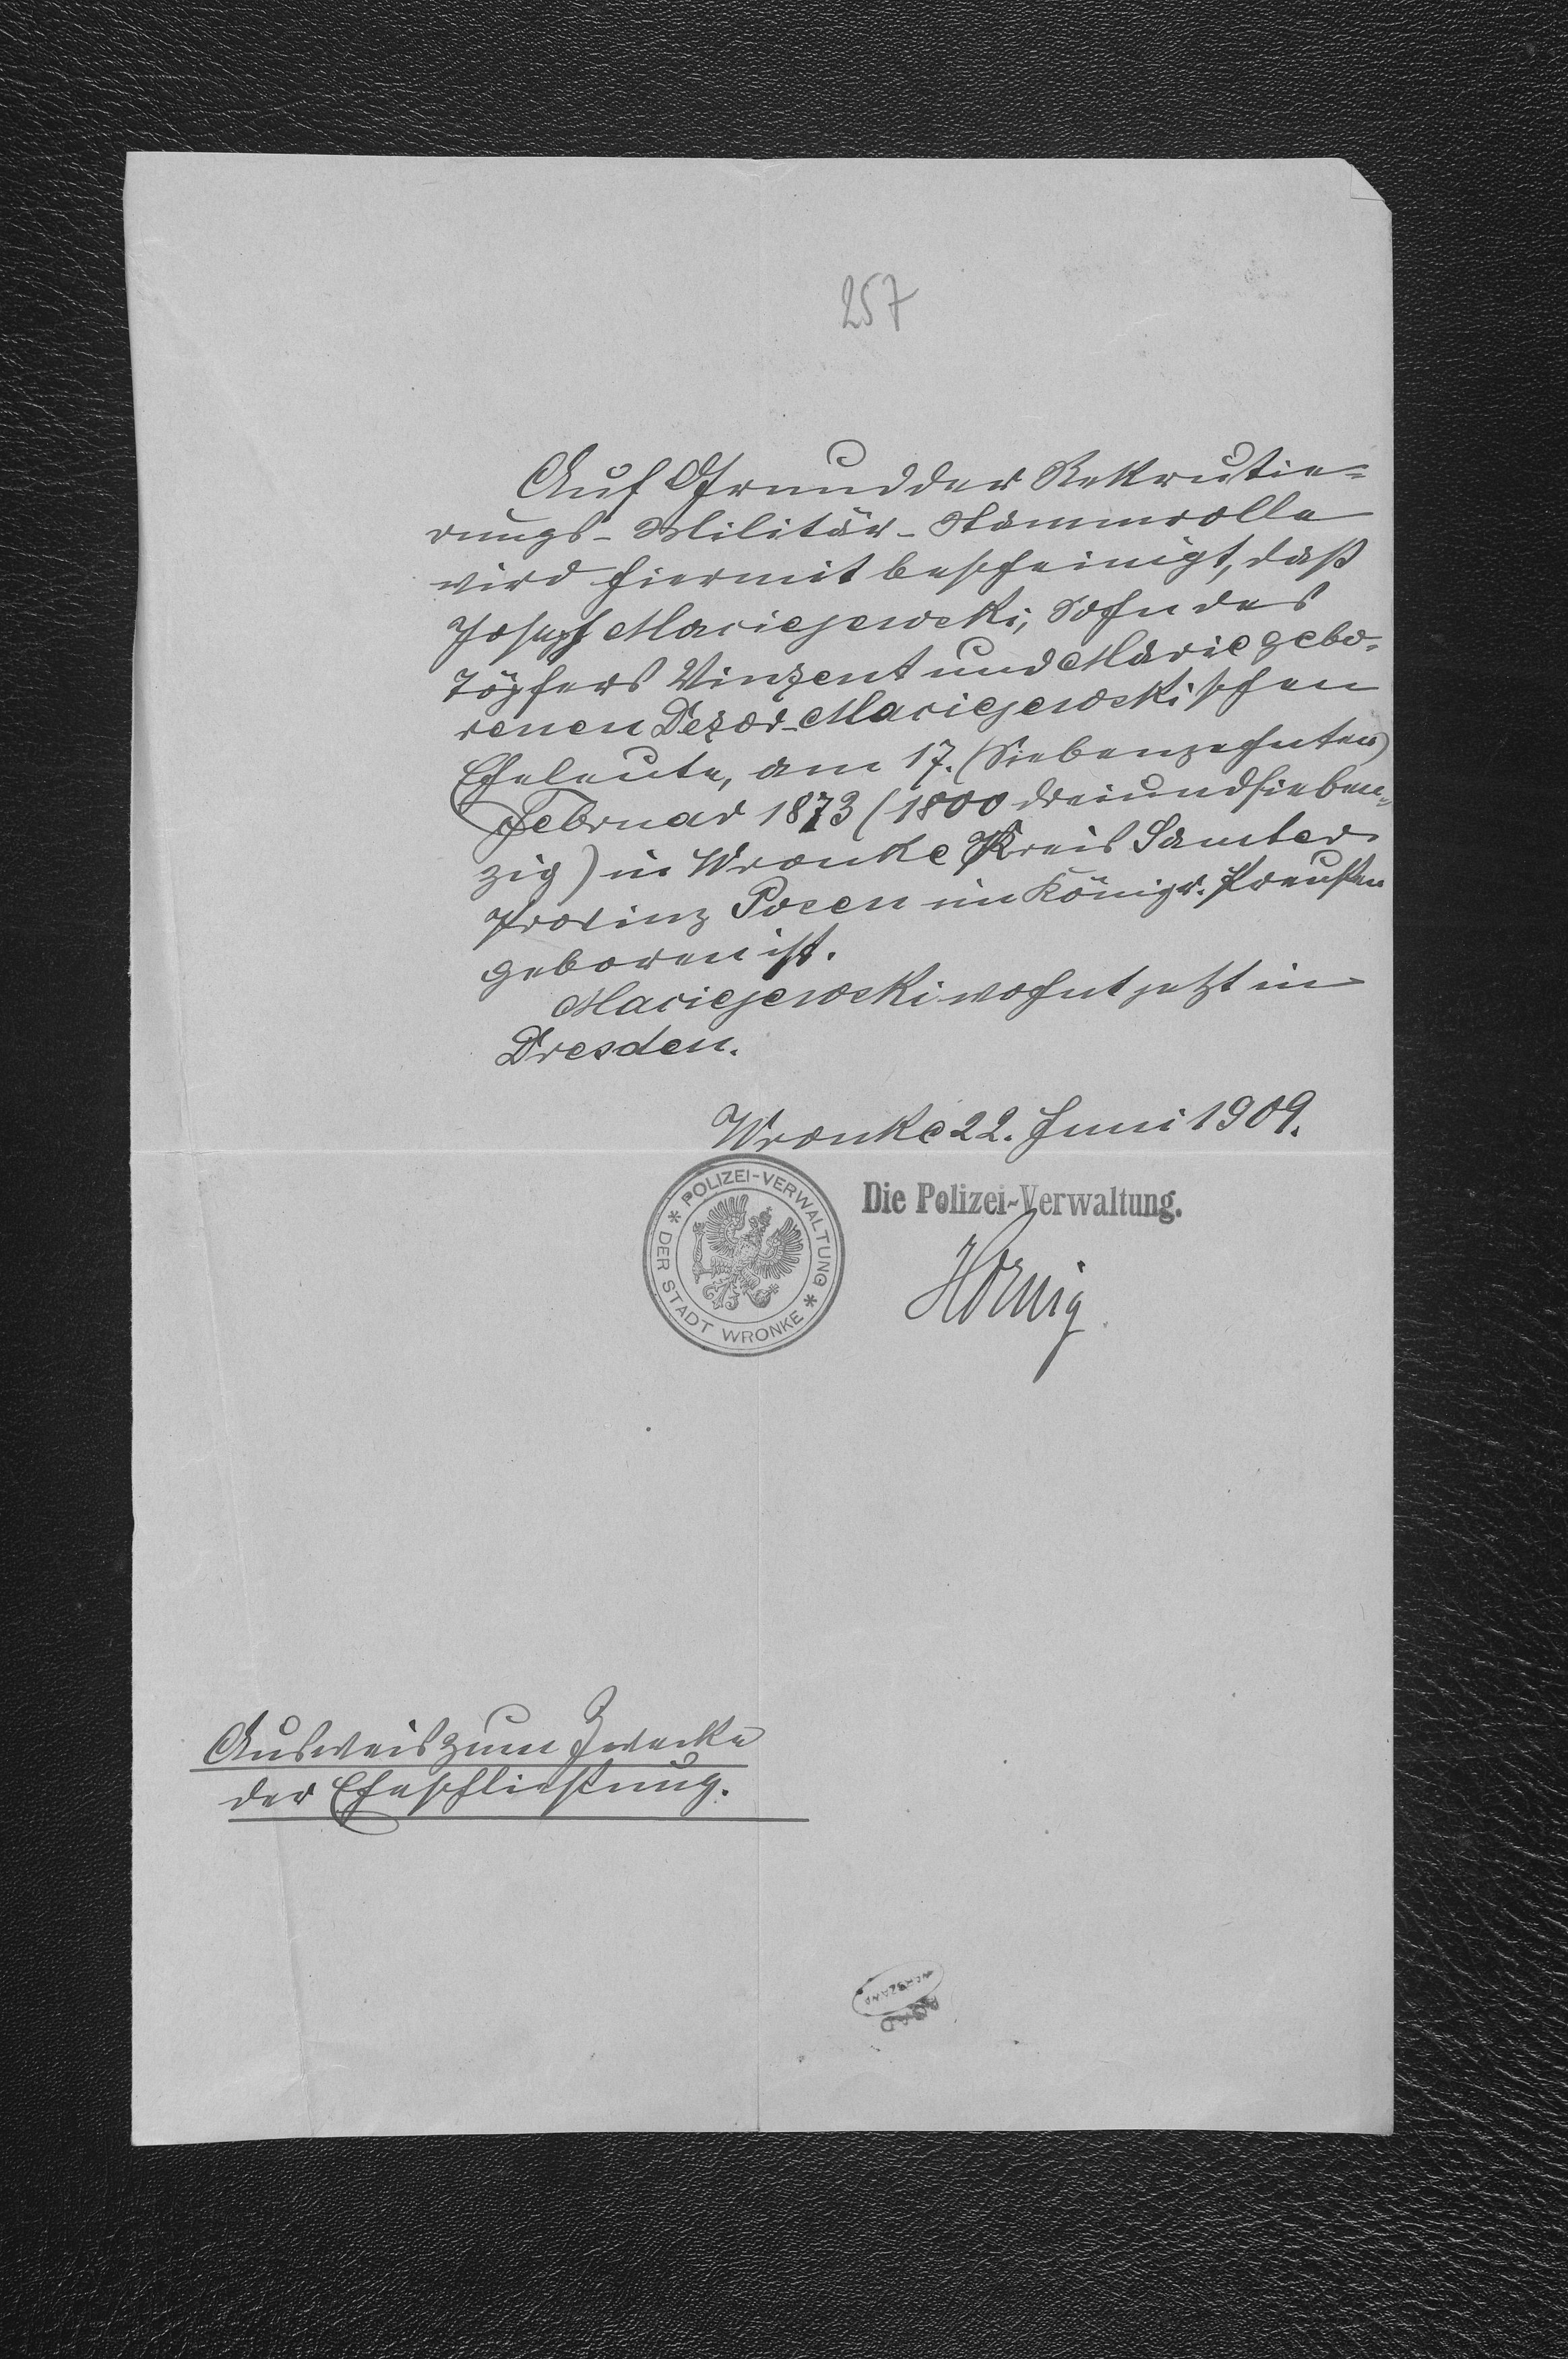 257
Auf Grund der Rekrutie-
rungs-Militär-Stammrolle
wird hiermit bescheinigt, daß
Joseph Maciejewski, Sohn des
Töpfers Vinzent und Marie gebo-
renen Dezor-Maciejewskischen
Eheleute, am 17. (Siebenzehnten)
Februar 1873 (1800 dreiundsieben-
zig) in Wronke Kreis Samter
Provinz Posen im Königr. Preußen
geboren ist.
Maciejewski wohnt jetzt in
Dresden.
Wronke 22. Juni 1909.
Die Polizei-Verwaltung.
* POLIZEI-VERWALTUNG * DER STADT WRONKE
Hornig
Ausweis zum Zwecke
der Eheschließung.